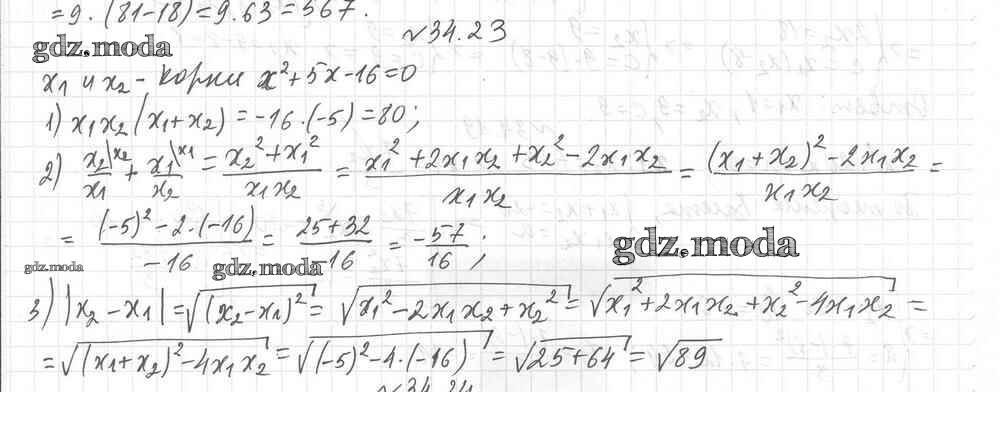 =9·(81-18)=9·63=567.
№34.23
gdz.moda
x₁ и x₂ - корни x²+5x-16=0
1) x₁x₂(x₁+x₂)=-16·(-5)=80;
2) x₂\x₂/x₁ + x₁\x₁/x₂ = (x₂²+x₁²)/(x₁x₂) = (x₁²+2x₁x₂+x₂²-2x₁x₂)/(x₁x₂) = ((x₁+x₂)²-2x₁x₂)/(x₁x₂) =
= ((-5)²-2·(-16))/(-16) = (25+32)/(-16) = -57/16;
gdz.moda
gdz.moda
gdz.moda
3) |x₂-x₁|=√((x₂-x₁)²)=√(x₁²-2x₁x₂+x₂²)=√(x₁²+2x₁x₂+x₂²-4x₁x₂)=
=√((x₁+x₂)²-4x₁x₂)=√((-5)²-4·(-16))=√(25+64)=√89
№34.24